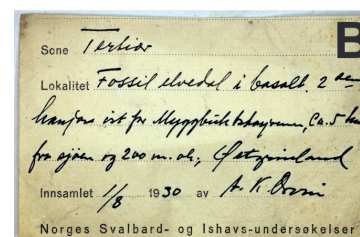 Sone Tertiær
B
Lokalitet Fossil elvedal i basalt. 2 den
for Myggbukthavnen, Ca. 5 km
fra sjøen og 200 m. oh., Østgrønland
Innsamlet 1/8 1930 av A. K. Orvin
Norges Svalbard- og Ishavs-undersøkelser